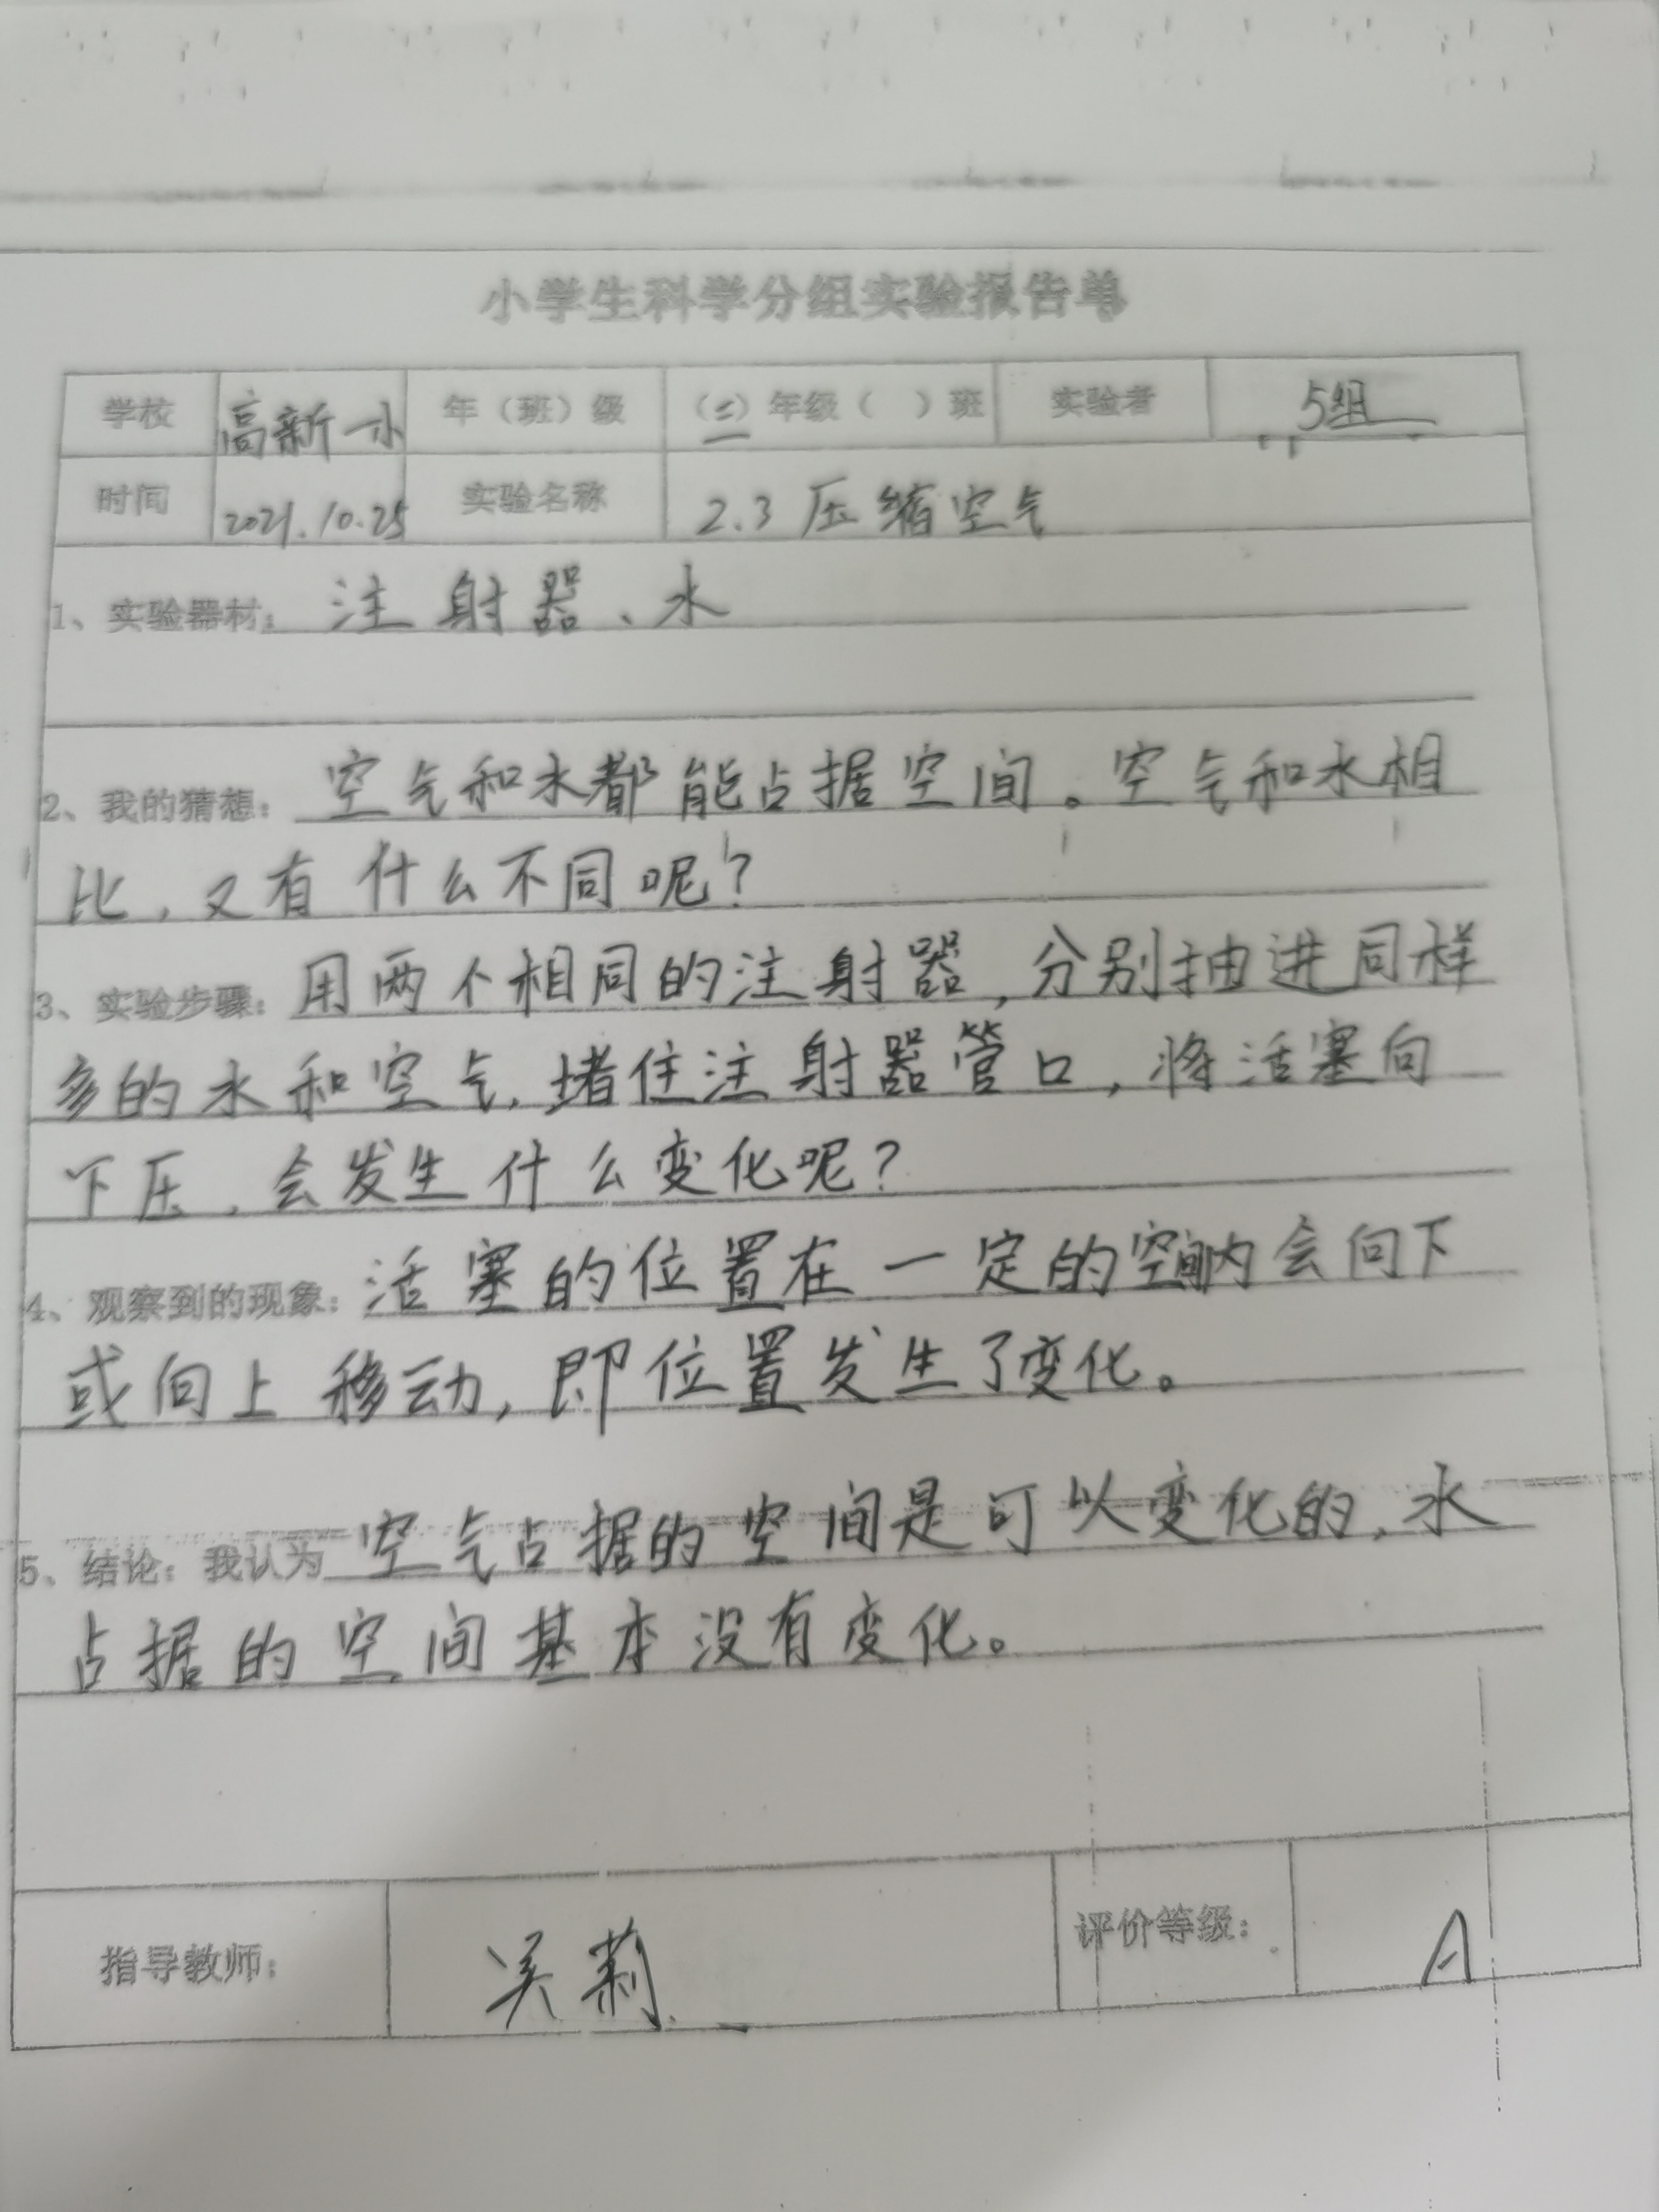 小学生科学分组实验报告单
学校 高新一小 年（班）级 （三）年级（ ）班 实验者 5组
时间 2021.10.25 实验名称 2.3 压缩空气
1、实验器材：注射器、水
2、我的猜想：空气和水都能占据空间。空气和水相
比，又有什么不同呢？
3、实验步骤：用两个相同的注射器，分别抽进同样
多的水和空气，堵住注射器管口，将活塞向
下压，会发生什么变化呢？
4、观察到的现象：活塞的位置在一定的空间内会向下
或向上移动，即位置发生了变化。
5、结论：我认为 空气占据的空间是可以变化的，水
占据的空间基本没有变化。
指导教师： 吴莉 评价等级： A